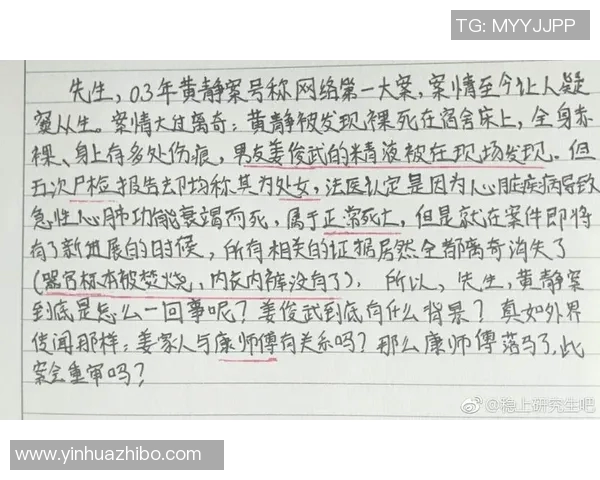 TG: MYYJJPP
先生，03年黄静案号称网络第一大案，案情至今让人疑
窦从生。案情大过离奇：黄静被发现裸死在宿舍床上，全身赤
裸、身上有多处伤痕，男友姜俊武的精液被在现场发现。但
五次尸检报告却均称其为处女，法医认定是因为心脏疾病导致
急性心肺功能衰竭而死，属于正常死亡，但是就在案件即将
有了新进展的时候，所有相关的证据居然全都离奇消失了
(器官标本被焚烧，内衣内裤没有了)．所以，先生，黄静案
到底是怎么一回事呢？姜俊武到底有什么背景？真如外界
传闻那样：姜家人与康师傅有关系吗？那么康师傅落马了，此
案会重审吗？
@稳上研究生吧
www.yinhuazhibo.com